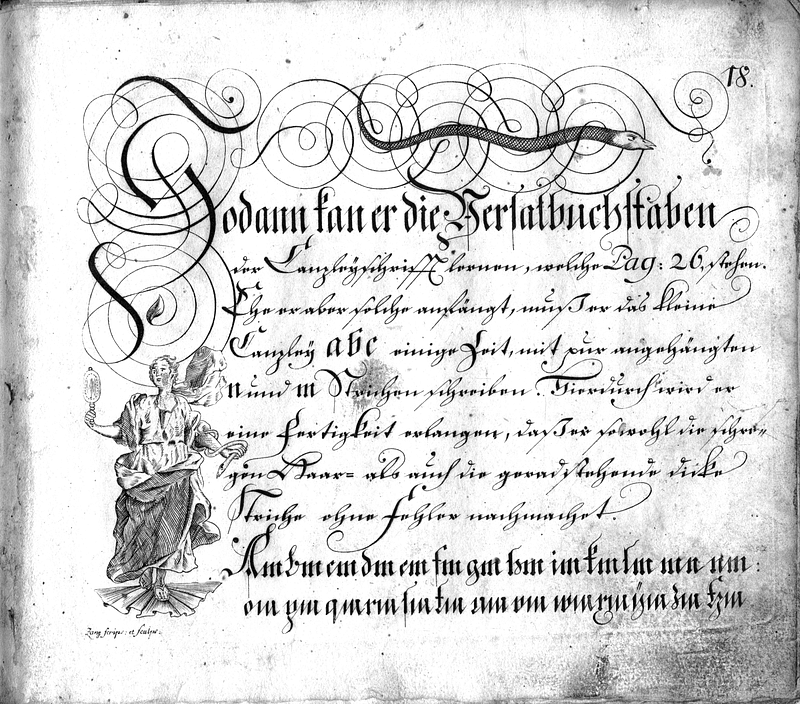 18.
Sodann kan er die Versalbuchstaben
der Canzleyschrifft lernen, welche Pag: 26. stehen.
Ehe er aber solche anfängt, muß er das kleine
Canzley abc einige Zeit, mit pur angehängten
n und m Strichen schreiben. Hierdurch wird er
eine Fertigkeit erlangen, daß er sowohl die schrä-
gen Haar= als auch die geradstehende dicke
Striche ohne Fehler nachmachet.
Am bm cm dm em fm gm hm im km lm mm nm:
om pm qm rm sm tm um vm wm xm ym zm tzm
Zang scrips: et sculps: